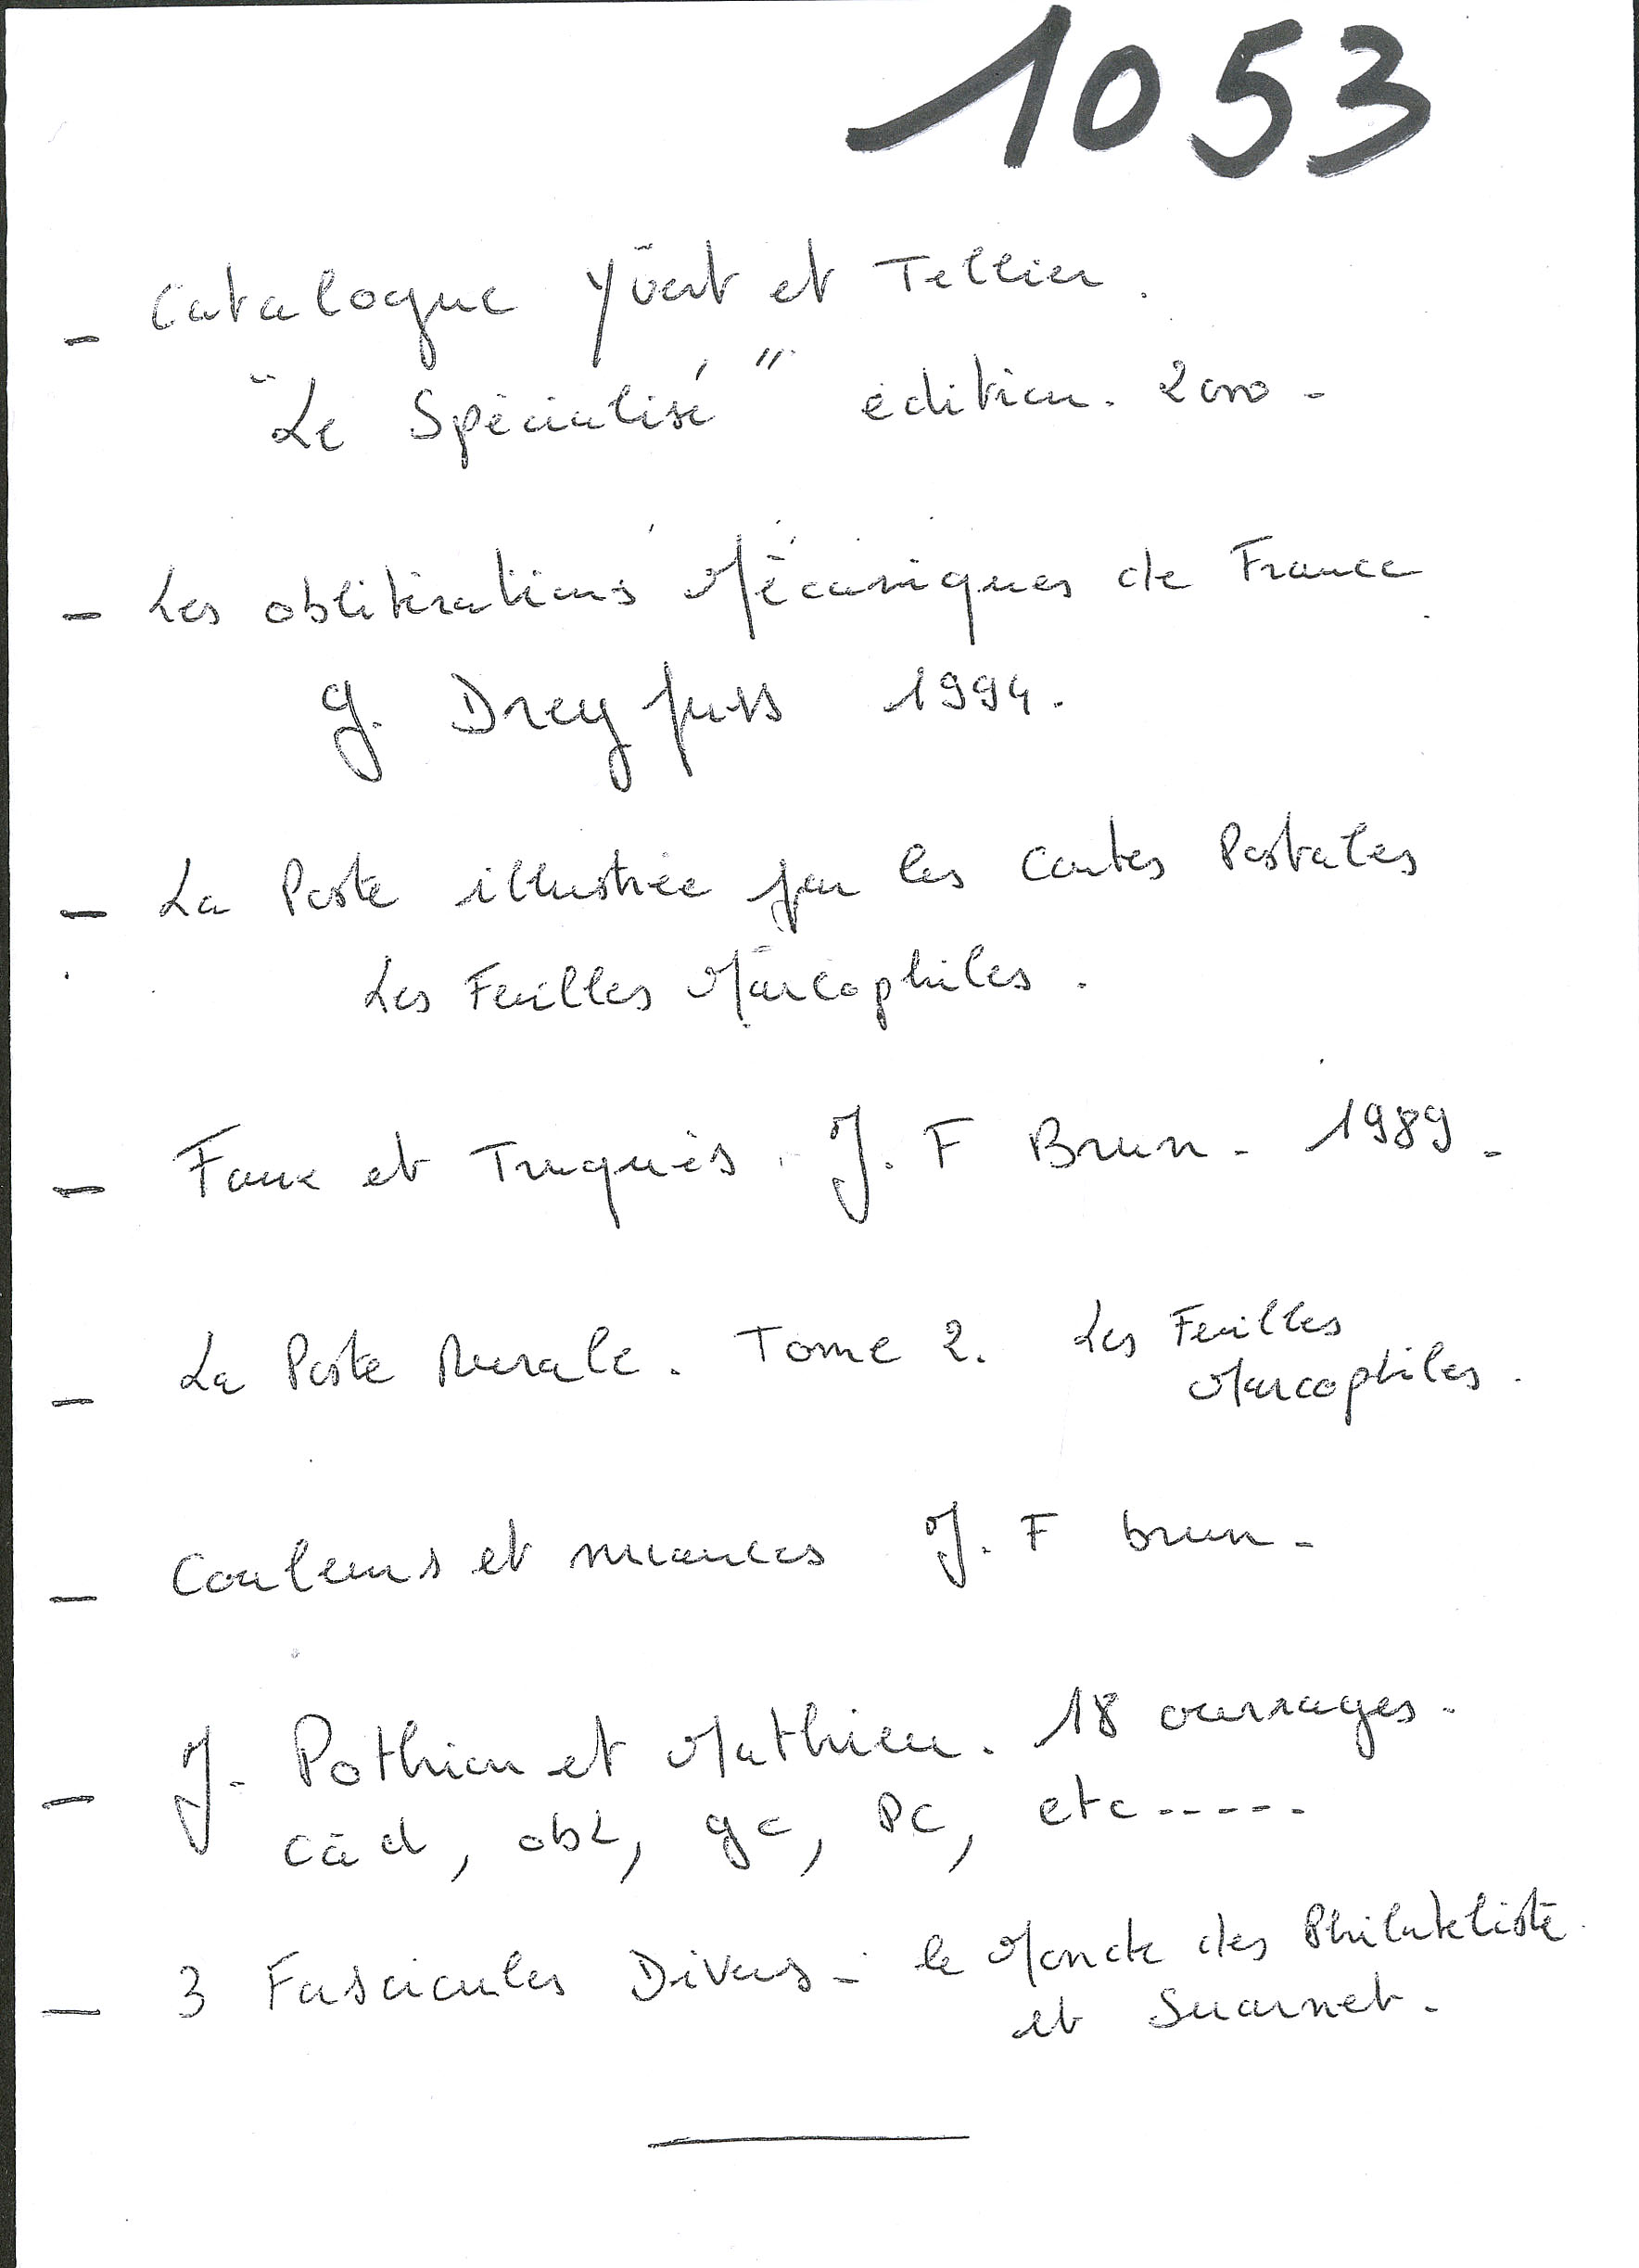 1053
- Catalogue Yvert et Tellier.
"Le Spécialisé" édition. 2000 -
- Les oblitérations Mécaniques de France.
G. Dreyfuss 1994.
- La Poste illustrée par les Cartes Postales
Les Feuilles Marcophiles.
- Faux et Truqués. J. F Brun - 1989 -
- La Poste Rurale. Tome 2. Les Feuilles
Marcophiles.
- Couleurs et nuances J. F brun -
- J. Pothion et Mathieu. 18 ouvrages.
càd, obl, gc, PC, etc-----
- 3 Fascicules Divers - le Monde des Philatéliste
et Suarnet.